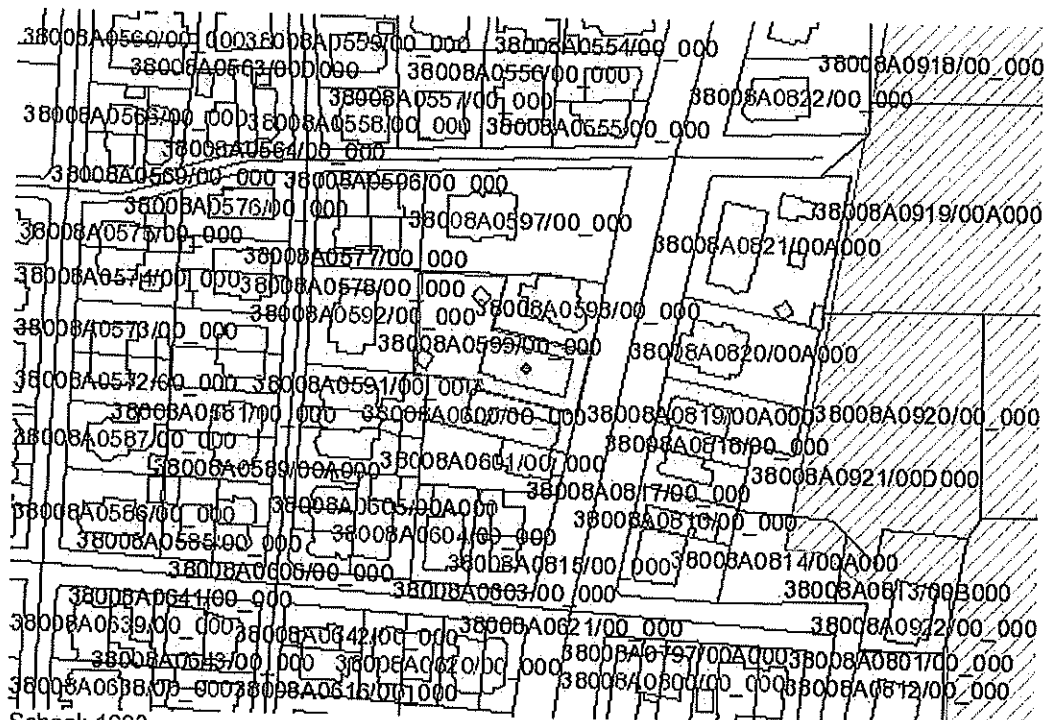 38008A0560/00_000 38008A0559/00_000 38008A0554/00_000
38008A0563/00D000 38008A0556/00_000 38008A0918/00_000
38008A0557/00_000 38008A0822/00_000
38008A0565/00_000 38008A0558/00_000 38008A0555/00_000
38008A0564/00_000
38008A0569/00_000 38008A0596/00_000
38008A0576/00_000 38008A0597/00_000 38008A0919/00A000
38008A0575/00_000 38008A0821/00A000
38008A0577/00_000
38008A0574/00_000 38008A0578/00_000
38008A0592/00_000 38008A0598/00_000
38008A0573/00_000 38008A0599/00_000 38008A0820/00A000
38008A0572/00_000 38008A0591/00_000
38008A0581/00_000 38008A0600/00_000 38008A0819/00A000 38008A0920/00_000
38008A0587/00_000 38008A0818/00_000
38008A0589/00A000 38008A0601/00_000 38008A0921/00D000
38008A0817/00_000
38008A0586/00_000 38008A0605/00A000 38008A0816/00_000
38008A0585/00_000 38008A0604/00_000
38008A0606/00_000 38008A0815/00_000 38008A0814/00A000
38008A0641/00_000 38008A0603/00_000 38008A0813/00B000
38008A0639/00_000 38008A0642/00_000 38008A0621/00_000 38008A0922/00_000
38008A0643/00_000 38008A0620/00_000 38008A0797/00A000 38008A0801/00_000
38008A0638/00_000 38008A0616/00_000 38008A0800/00_000 38008A0812/00_000